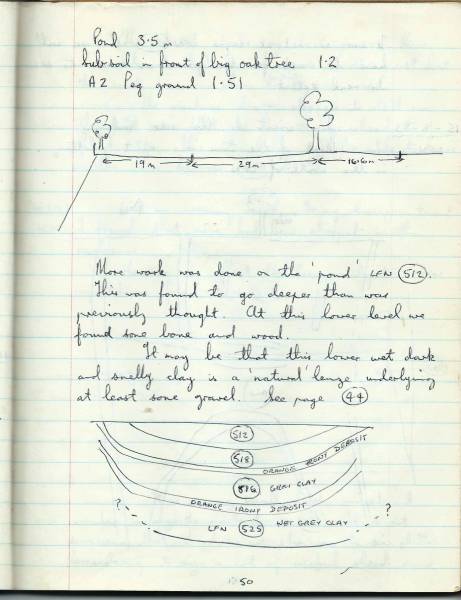 Pond 3.5m
Subsoil in front of big oak tree 1.2
A2 Peg ground 1.51
19m 29m 16.6m
More work was done on the 'pond' LFN 512.
This was found to go deeper than was
previously thought. At this lower level we
found some bone and wood.
It may be that this lower wet dark
and smelly clay is a 'natural' lenze underlying
at least some gravel. See page 44
512
518
ORANGE IRONY DEPOSIT
516 GREY CLAY
ORANGE IRONY DEPOSIT
? LFN 525 WET GREY CLAY ?
50